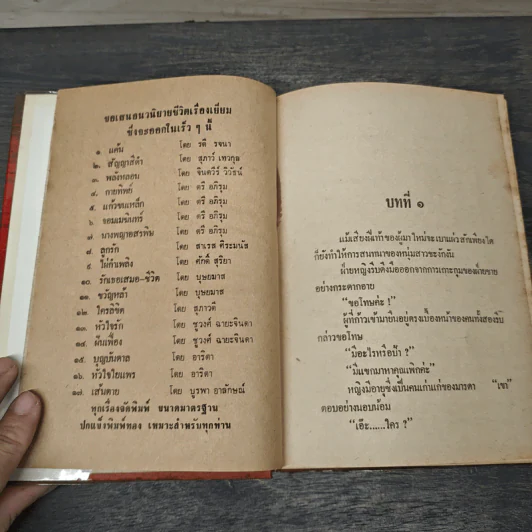 ขอเสนอนวนิยายชีวิตเรื่องเยี่ยม
ซึ่งจะออกในเร็ว ๆ นี้
๑. แค้น โดย รตี รจนา
๒. สัญญาสีดำ โดย สุภาว์ เทวกุล
๓. พลังหลอน โดย จินตวีร์ วิวัธน์
๔. กายทิพย์ โดย ตรี อภิรุม
๕. แก้วขนเหล็ก โดย ตรี อภิรุม
๖. จอมเมฆินทร์ โดย ตรี อภิรุม
๗. นางพญาอสรพิษ โดย ตรี อภิรุม
๘. ลูกรัก โดย สาเรส ศิระมนัส
๙. ไฝกำเพลิง โดย ศักดิ์ สุริยา
๑๐. รักเธอเสมอ-ชีวิต โดย บุษยมาส
๑๑. ขวัญหล้า โดย บุษยมาส
๑๒. ใครลิขิต โดย สุภาวดี
๑๓. หัวใจรัก โดย ชูวงศ์ ฉายะจินดา
๑๔. ฝันเฟื่อง โดย ชูวงศ์ ฉายะจินดา
๑๕. บุญบันดาล โดย อาริตา
๑๖. หัวใจใยแพร โดย อาริตา
๑๗. เส้นตาย โดย บูรพา อาลักษณ์
ทุกเรื่องจัดพิมพ์ ขนาดมาตรฐาน
ปกแข็งพิมพ์ทอง เหมาะสำหรับทุกท่าน
บทที่ ๑
แม้เสียงฝีเท้าของผู้มาใหม่จะเบาแผ่วสักเพียงใด
ก็ยังทำให้การสนทนาของหนุ่มสาวชะงักงัน
ฝ่ายหญิงรีบดึงมือออกจากการเกาะกุมของฝ่ายชาย
อย่างกระดากอาย
"ขอโทษค่ะ !"
ผู้ที่ก้าวเข้ามายืนอยู่ตรงเบื้องหน้าของคนทั้งสองรีบ
กล่าวขอโทษ
"มีอะไรหรือป้า ?"
"มีแขกมาหาคุณเพิกค่ะ"
หญิงมีอายุซึ่งเป็นคนเก่าแก่ของมารดา "เขา"
ตอบอย่างนอบน้อม
"เอ๊ะ......ใคร ?"